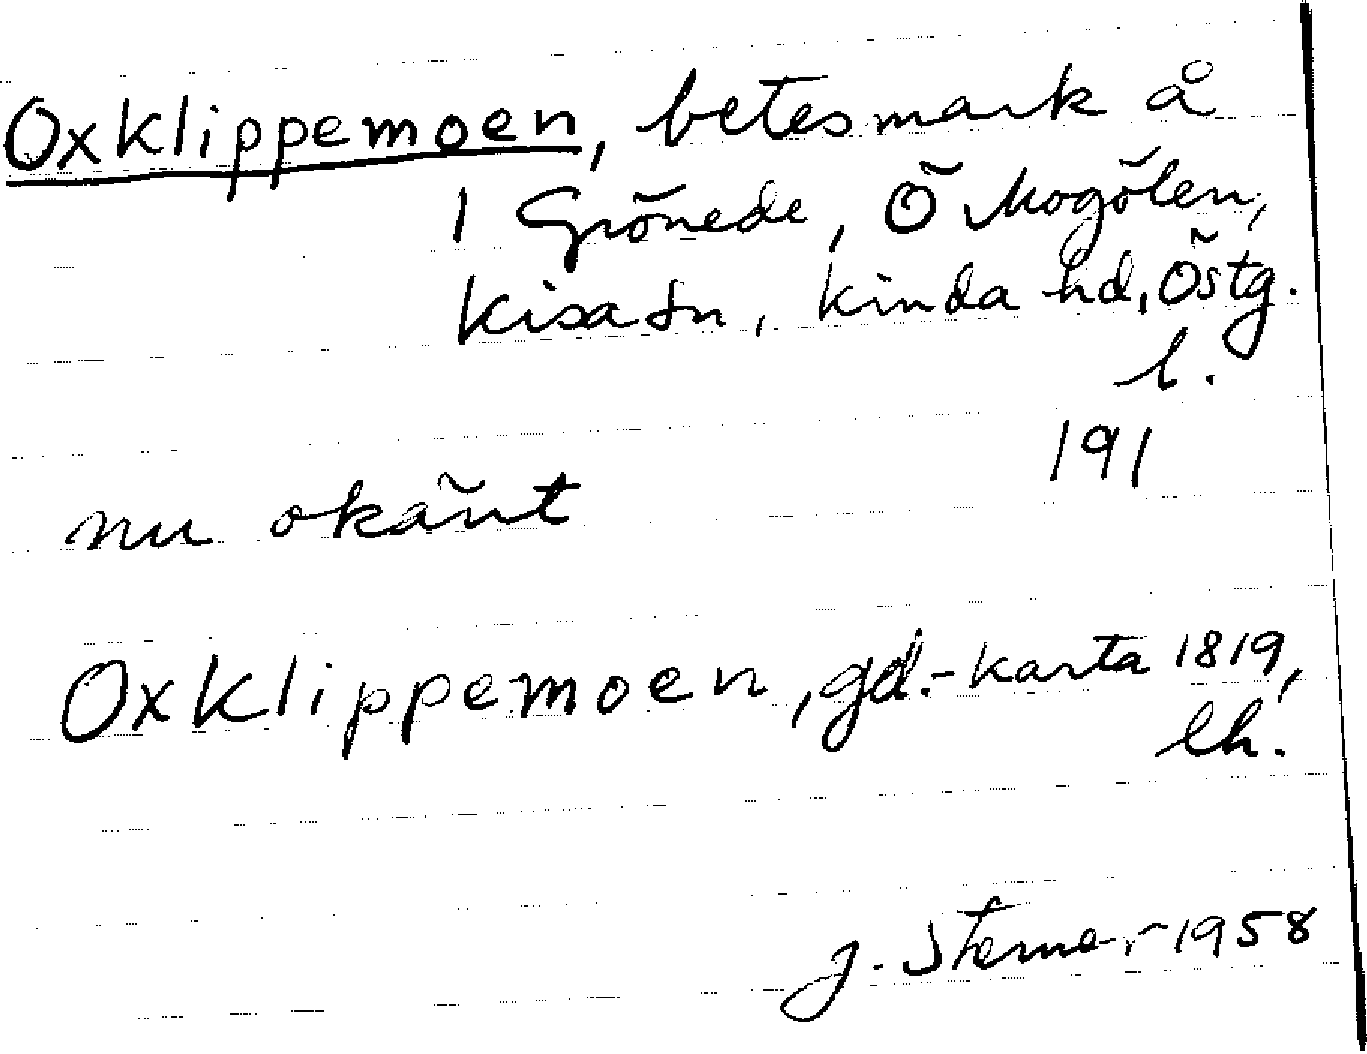 Oxklippemoen, betesmark å
1 Grönede, Ö Mogölen,
Kisa sn, Kinda hd, Östg.
l.
191
nu okänt
Oxklippemoen, gd.-karta 1819,
lh.
J. Sterner 1958